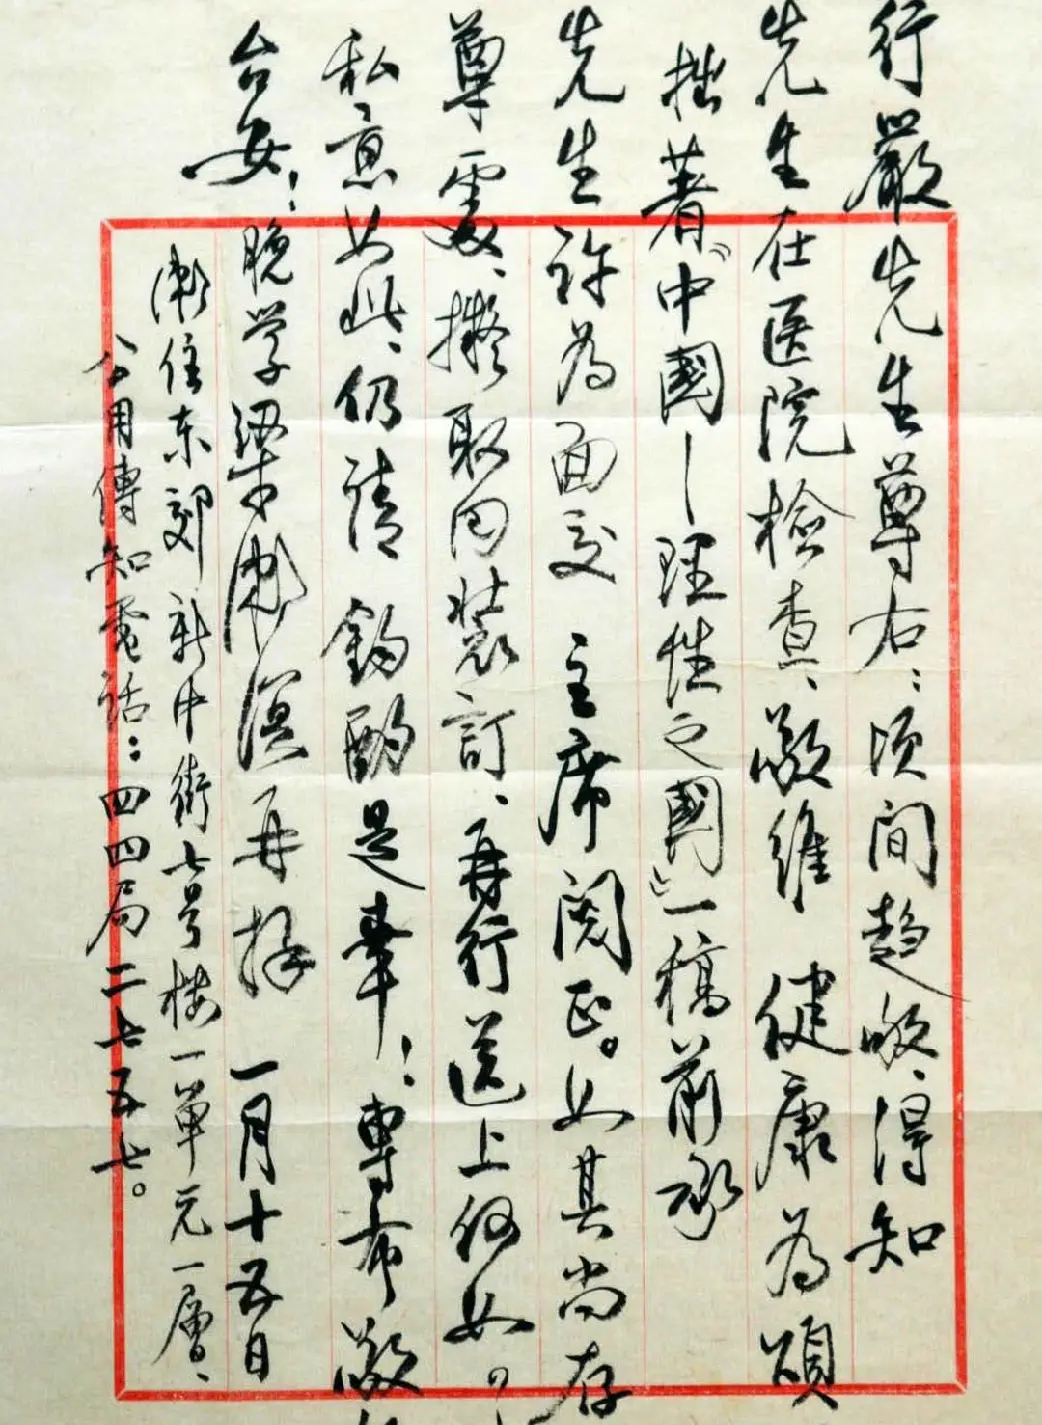 行嚴先生尊右：頃間趨晤、得知
先生在医院檢查、敬維 健康為頌
拙著《中國—理性之國》一稿前承
先生許為面交 主席閱正。如其尚存
尊處、擬取回裝訂、再行送上何如。
私意如此、仍請 鈞酌是幸！專布敬
台安！晚学梁漱溟再拜 一月十五日
漱住东郊新中街七号楼一單元一層、
公用傳知電話：四四局二七五七。